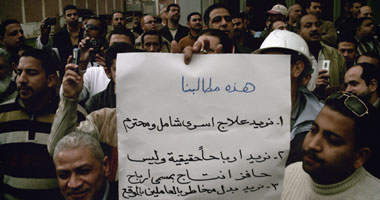 هذه مطالبنا
١. نريد علاج اسرى شامل ومحترم
٢- نريد ارباحاً حقيقية وليس
حافز انتاج بمسمى ارباح
٣- نريد بدل مخاطر بالعاملين بالموقع